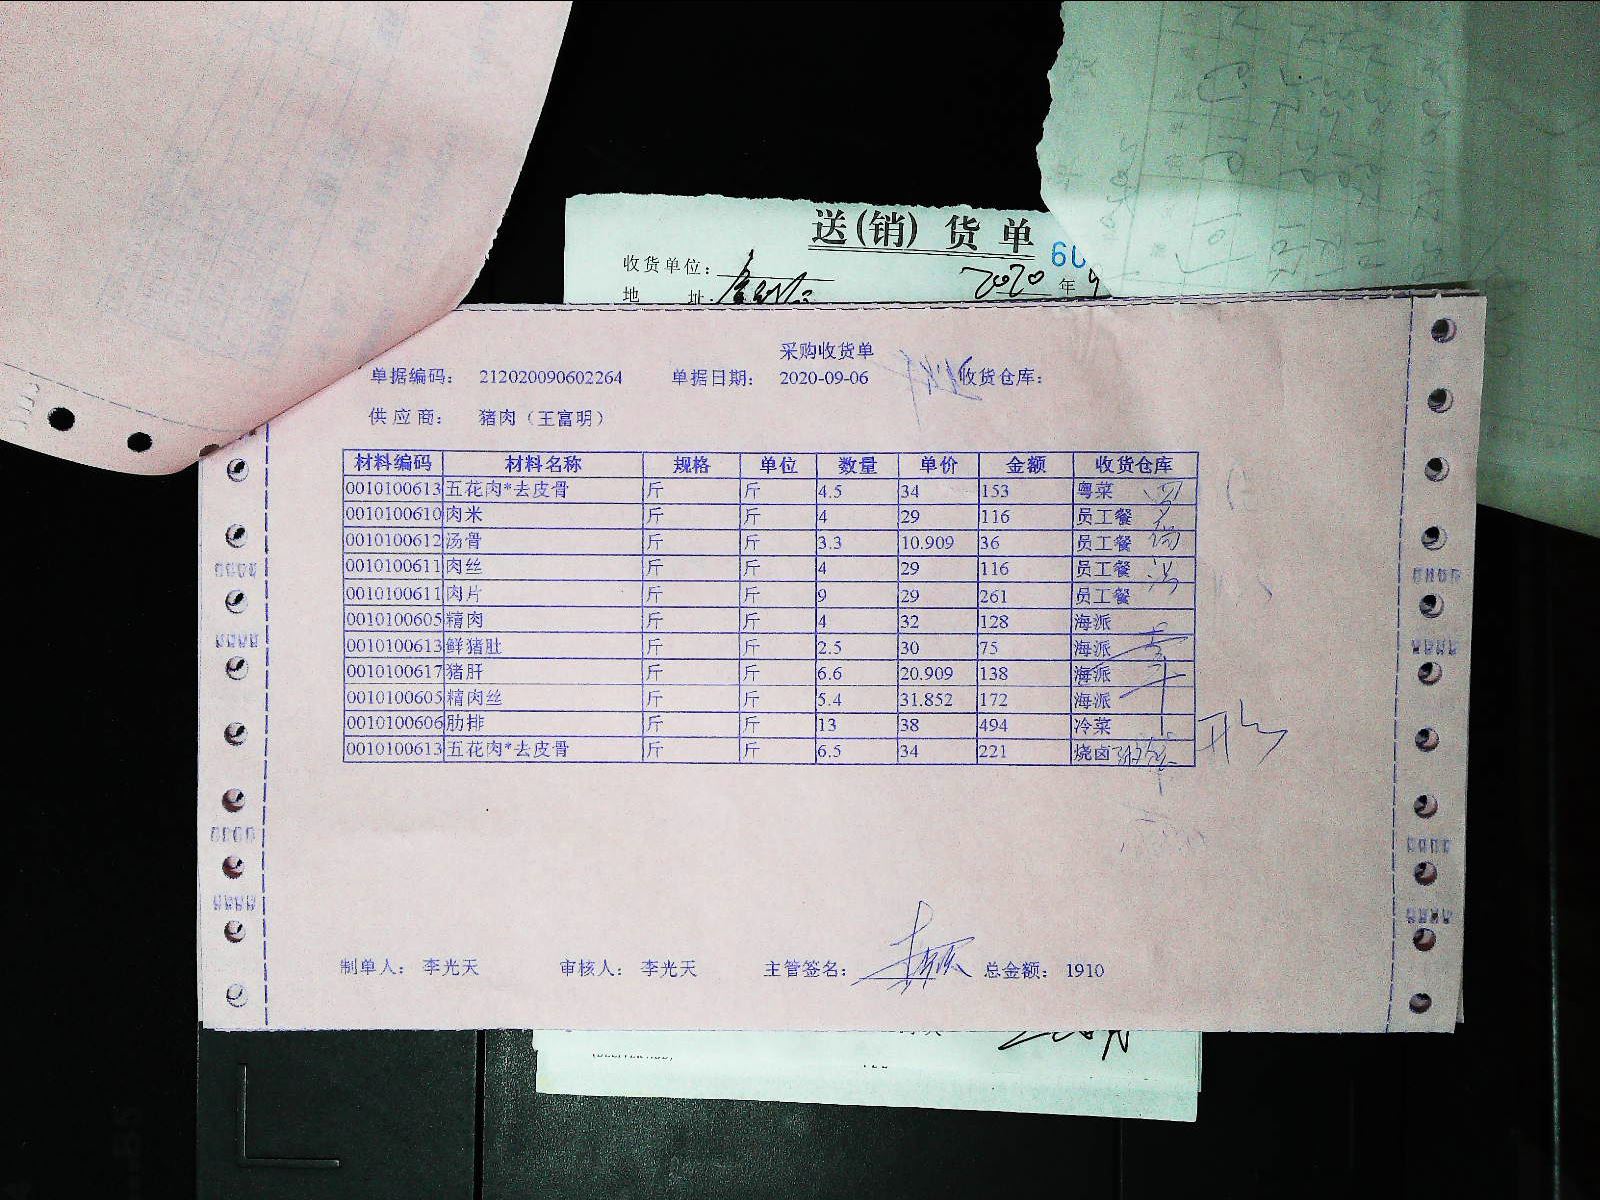 送(销)货单
60
收货单位：
2020 年 9
地 址：
采购收货单
单据编码： 212020090602264 单据日期： 2020-09-06 收货仓库：
供应商： 猪肉（王富明）
材料编码 材料名称 规格 单位 数量 单价 金额 收货仓库
0010100613 五花肉*去皮骨 斤 斤 4.5 34 153 粤菜
0010100610 肉米 斤 斤 4 29 116 员工餐
0010100612 汤骨 斤 斤 3.3 10.909 36 员工餐
0010100611 肉丝 斤 斤 4 29 116 员工餐
0010100611 肉片 斤 斤 9 29 261 员工餐
0010100605 精肉 斤 斤 4 32 128 海派
0010100613 鲜猪肚 斤 斤 2.5 30 75 海派
0010100617 猪肝 斤 斤 6.6 20.909 138 海派
0010100605 精肉丝 斤 斤 5.4 31.852 172 海派
0010100606 肋排 斤 斤 13 38 494 冷菜
0010100613 五花肉*去皮骨 斤 斤 6.5 34 221 烧卤
制单人： 李光天 审核人： 李光天 主管签名： 总金额： 1910